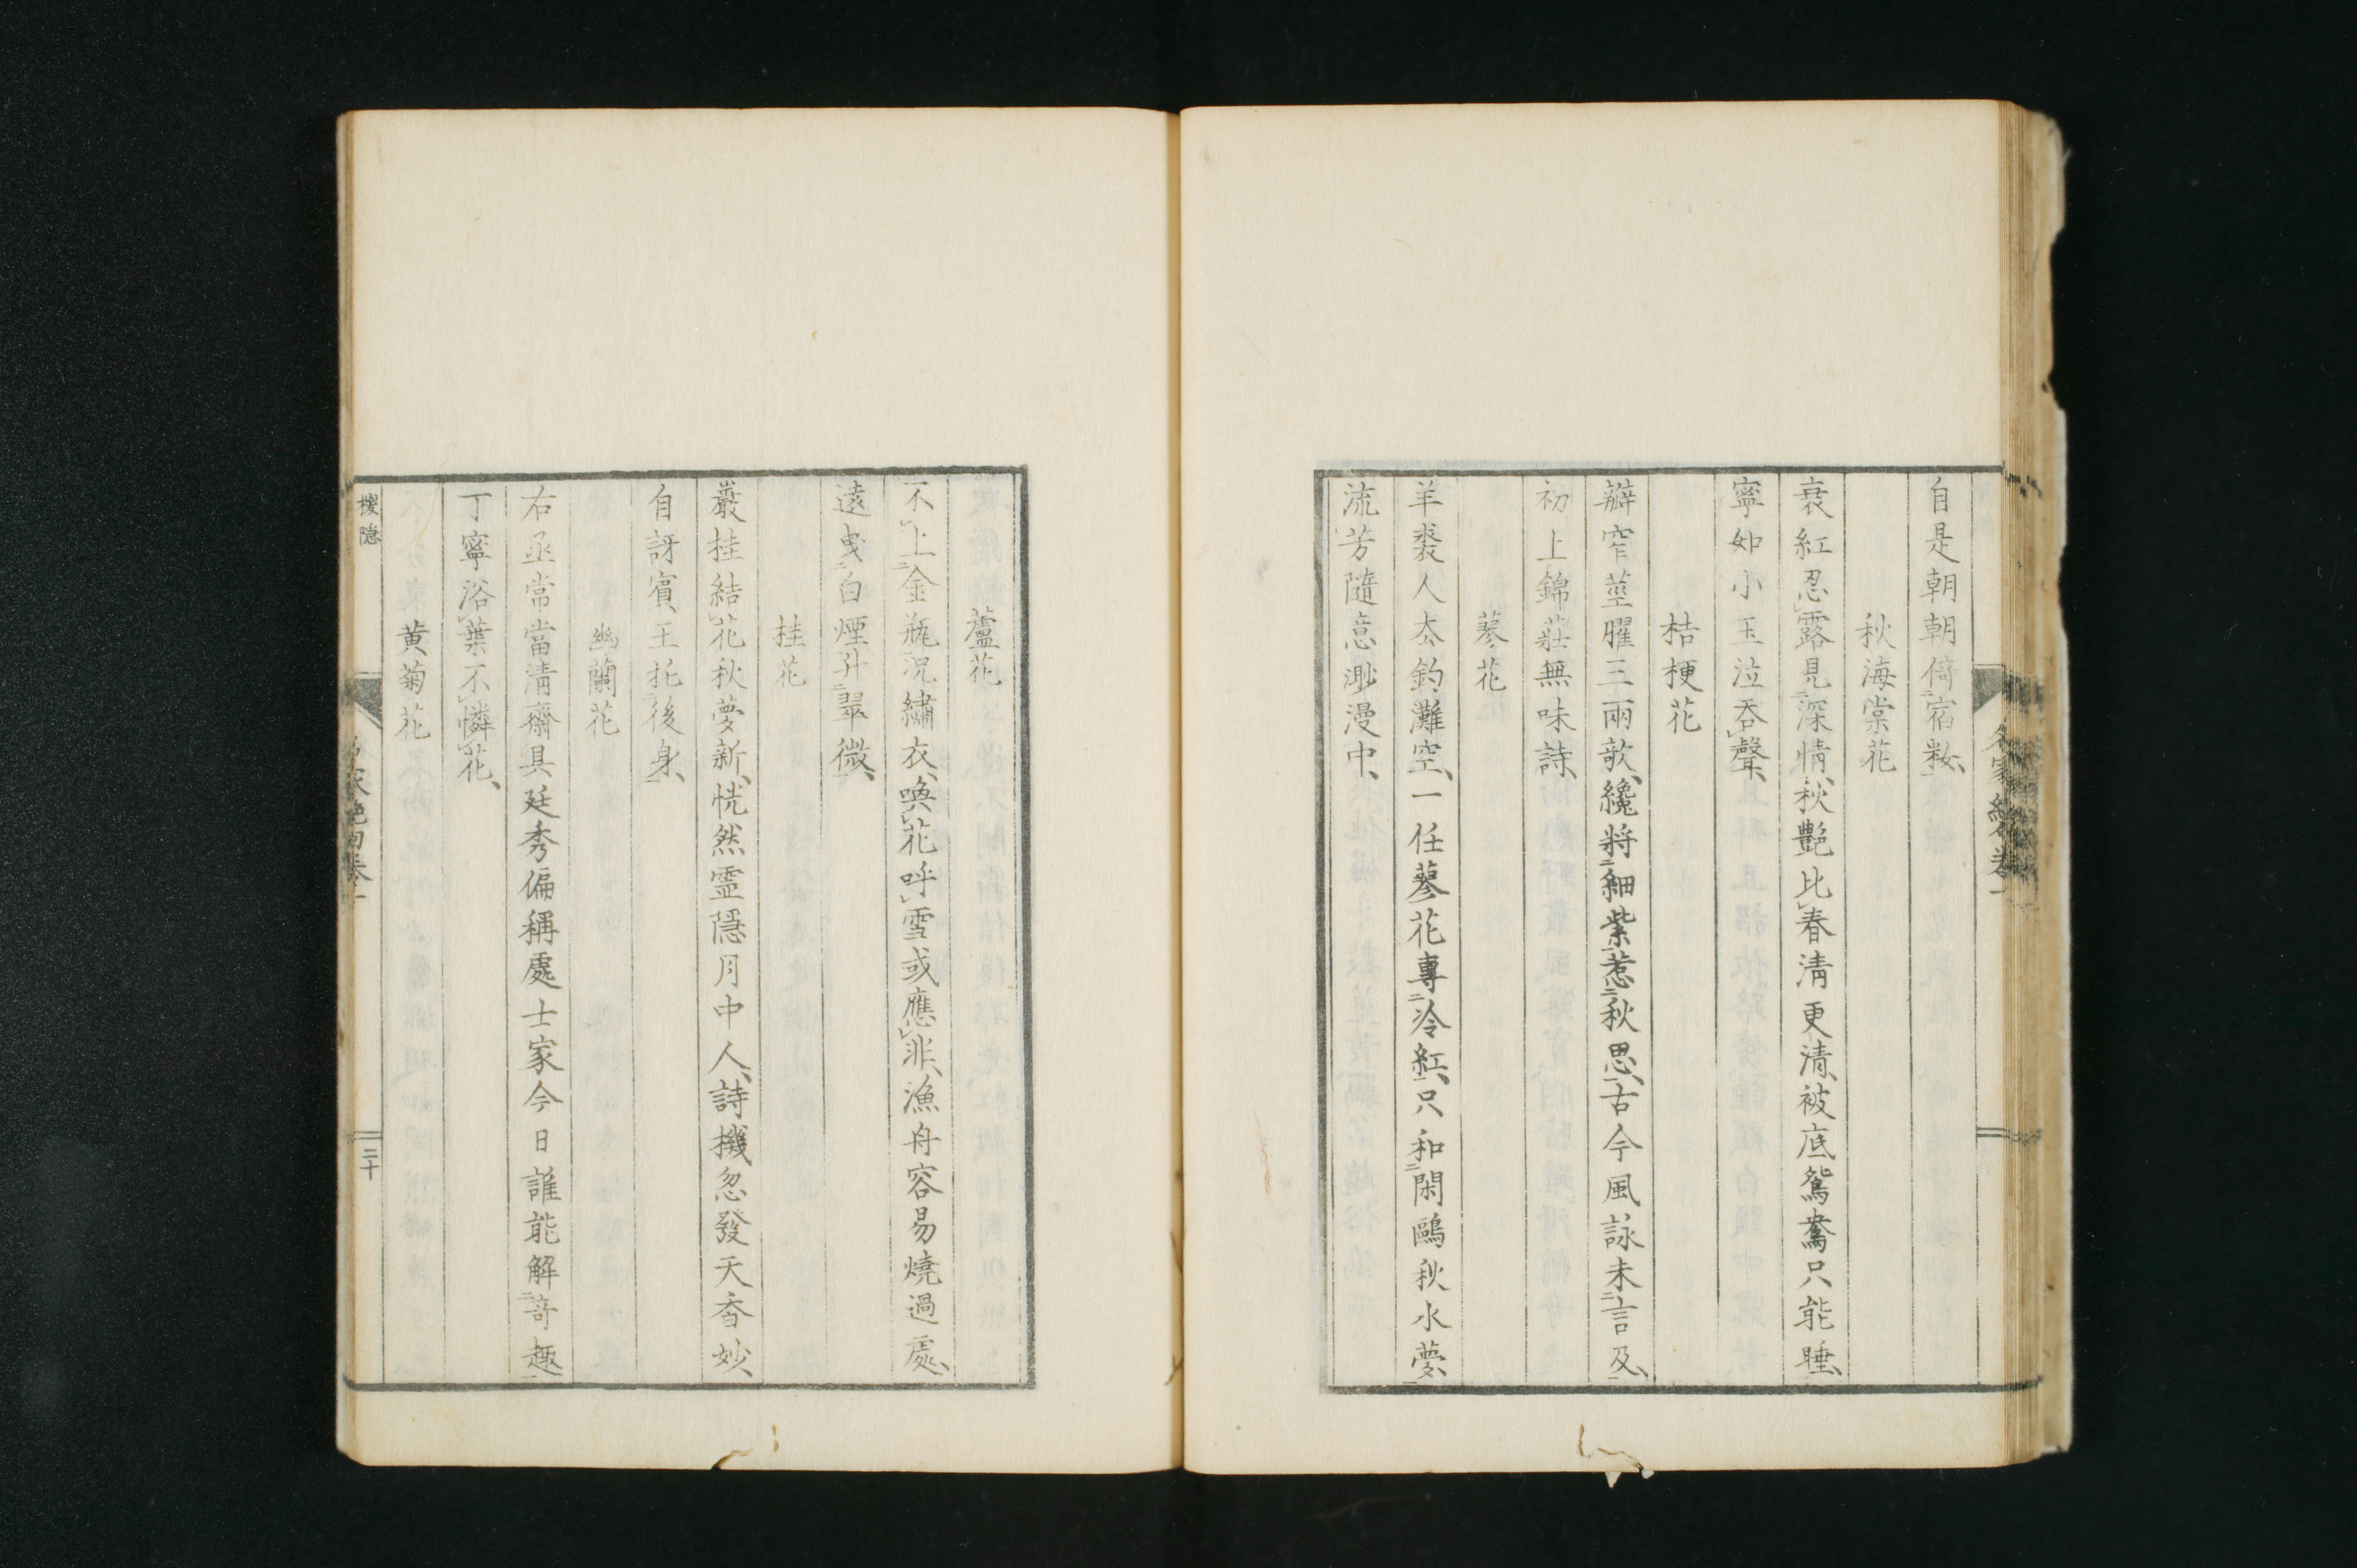 自是朝朝倚宿粧
秋海棠花
衰紅忍露見深情秋艷比春清更清被底鴛鴦只能睡
寧如小玉泣吞聲
桔梗花
瓣窄莖臞三兩歌纔將細紫惹秋思古今風詠未言及
初上錦莊無味詩
蓼花
羊裘人去釣灘空一任蓼花專冷紅只和閑鷗秋水夢
流芳隨意渺漫中
名家絕句卷一
蘆花
不上金瓶況繡衣喚花呼雪或應非漁舟容易燒過處
遠曳白煙升翠微
桂花
巖桂結花秋夢新恍然霊隱月中人詩機忽發天香妙
自訝賓王托後身
幽蘭花
右丞常當清齋具廷秀偏稱處士家今日誰能解奇趣
丁寧浴葉不憐花
黄菊花
名家絕句卷一
二十